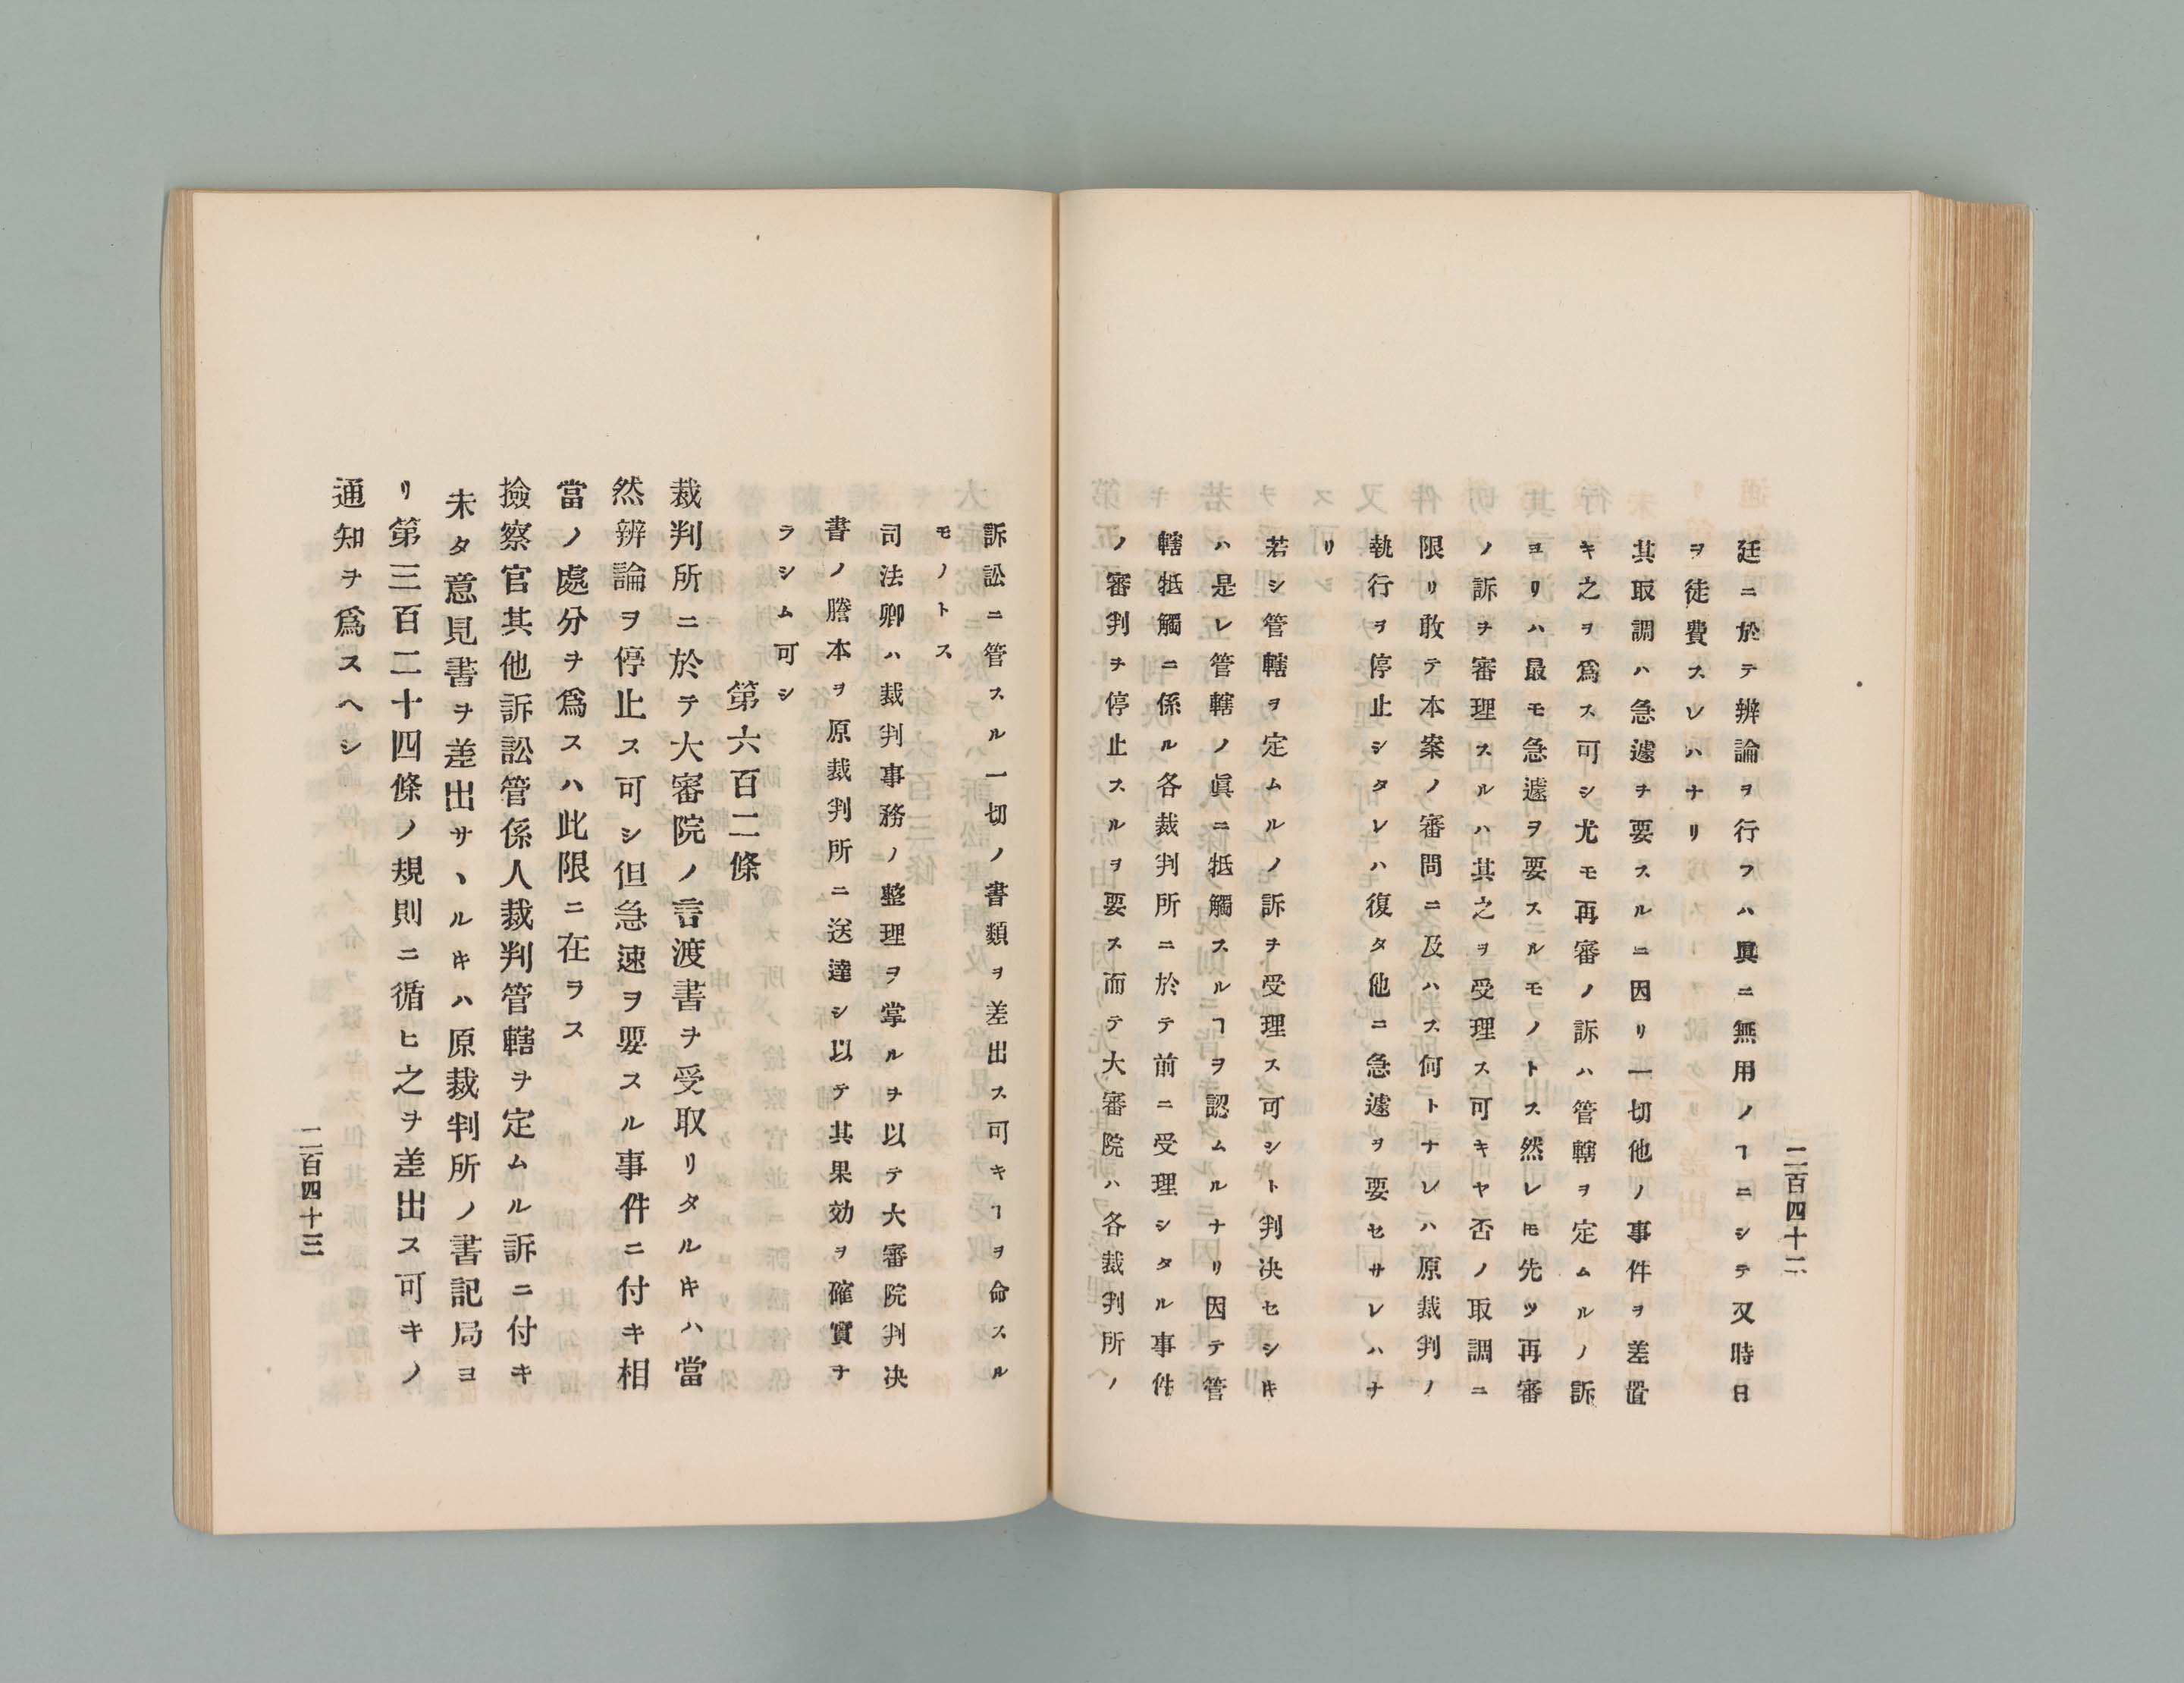 二百四十二
廷ニ於テ辨論ヲ行フハ眞ニ無用ノヿニシテ又時日
ヲ徒費スレハナリ
其取調ハ急遽ヲ要スルニ因リ一切他ノ事件ヲ差置
キ之ヲ爲ス可シ尤モ再審ノ訴ハ管轄ヲ定ムルノ訴
ヨリハ最モ急遽ヲ要スルモノトス然レ𪜈先ツ再審
ノ訴ヲ審理スルハ其之ヲ受理ス可キヤ否ノ取調ニ
限リ敢テ本案ノ審問ニ及ハス何トナレハ原裁判ノ
執行ヲ停止シタレハ復タ他ニ急遽ヲ要セサレハナ
リ
若シ管轄ヲ定ムルノ訴ヲ受理ス可シト判决セシ𪜀
ハ是レ管轄ノ眞ニ牴觸スルヿヲ認ムルナリ因テ管
轄牴觸ニ係ル各裁判所ニ於テ前ニ受理シタル事件
ノ審判ヲ停止スルヲ要ス而テ大審院ハ各裁判所ノ
訴訟ニ管スル一切ノ書類ヲ差出ス可キヿヲ命スル
モノトス
司法卿ハ裁判事務ノ整理ヲ掌ルヲ以テ大審院判决
書ノ謄本ヲ原裁判所ニ送達シ以テ其果効ヲ確實ナ
ラシム可シ
第六百二條
裁判所ニ於テ大審院ノ言渡書ヲ受取リタル𪜀ハ當
然辨論ヲ停止ス可シ但急速ヲ要スル事件ニ付キ相
當ノ處分ヲ爲スハ此限ニ在ラス
撿察官其他訴訟管係人裁判管轄ヲ定ムル訴ニ付キ
未タ意見書ヲ差出サヽル𪜀ハ原裁判所ノ書記局ヨ
リ第三百二十四條ノ規則ニ循ヒ之ヲ差出ス可キノ
通知ヲ爲スヘシ
二百四十三